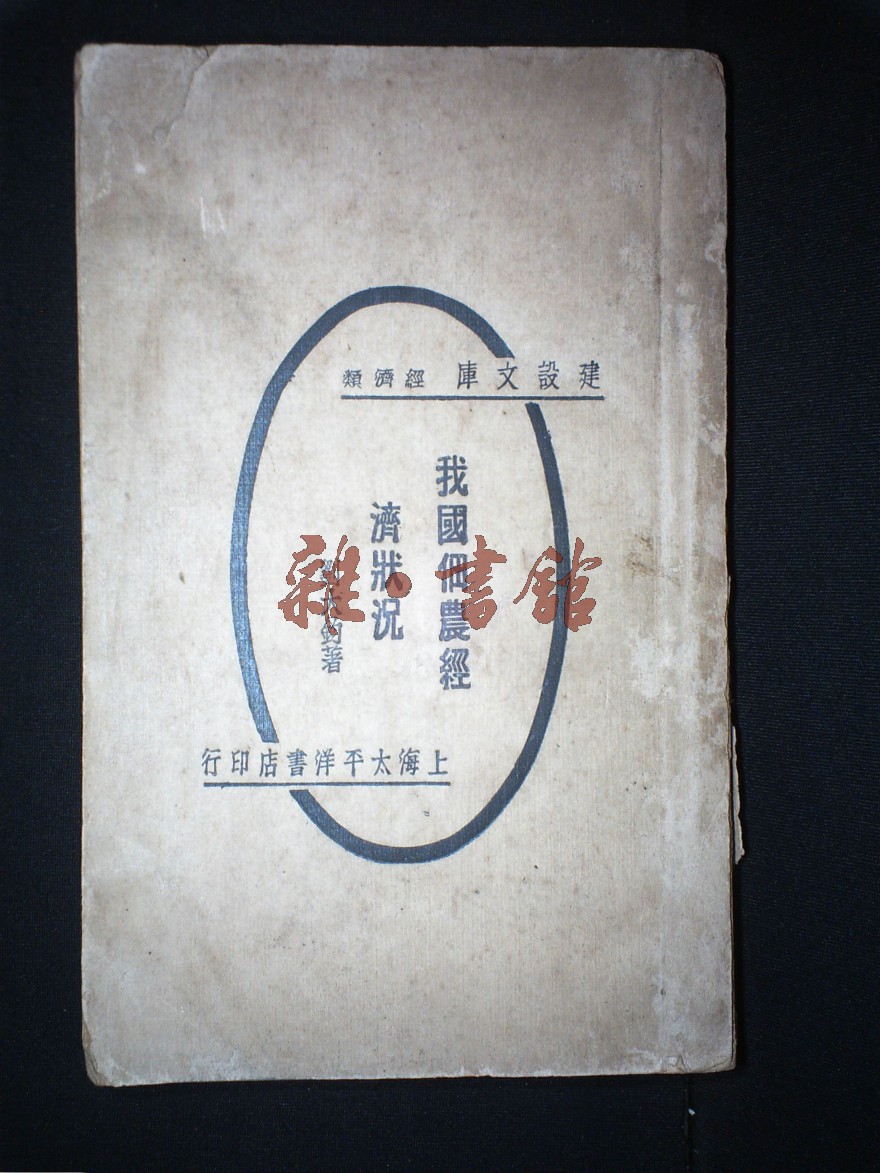 建設文庫 經濟類
我國佃農經
濟狀況
劉大鈞著
上海太平洋書店印行
雜·書館